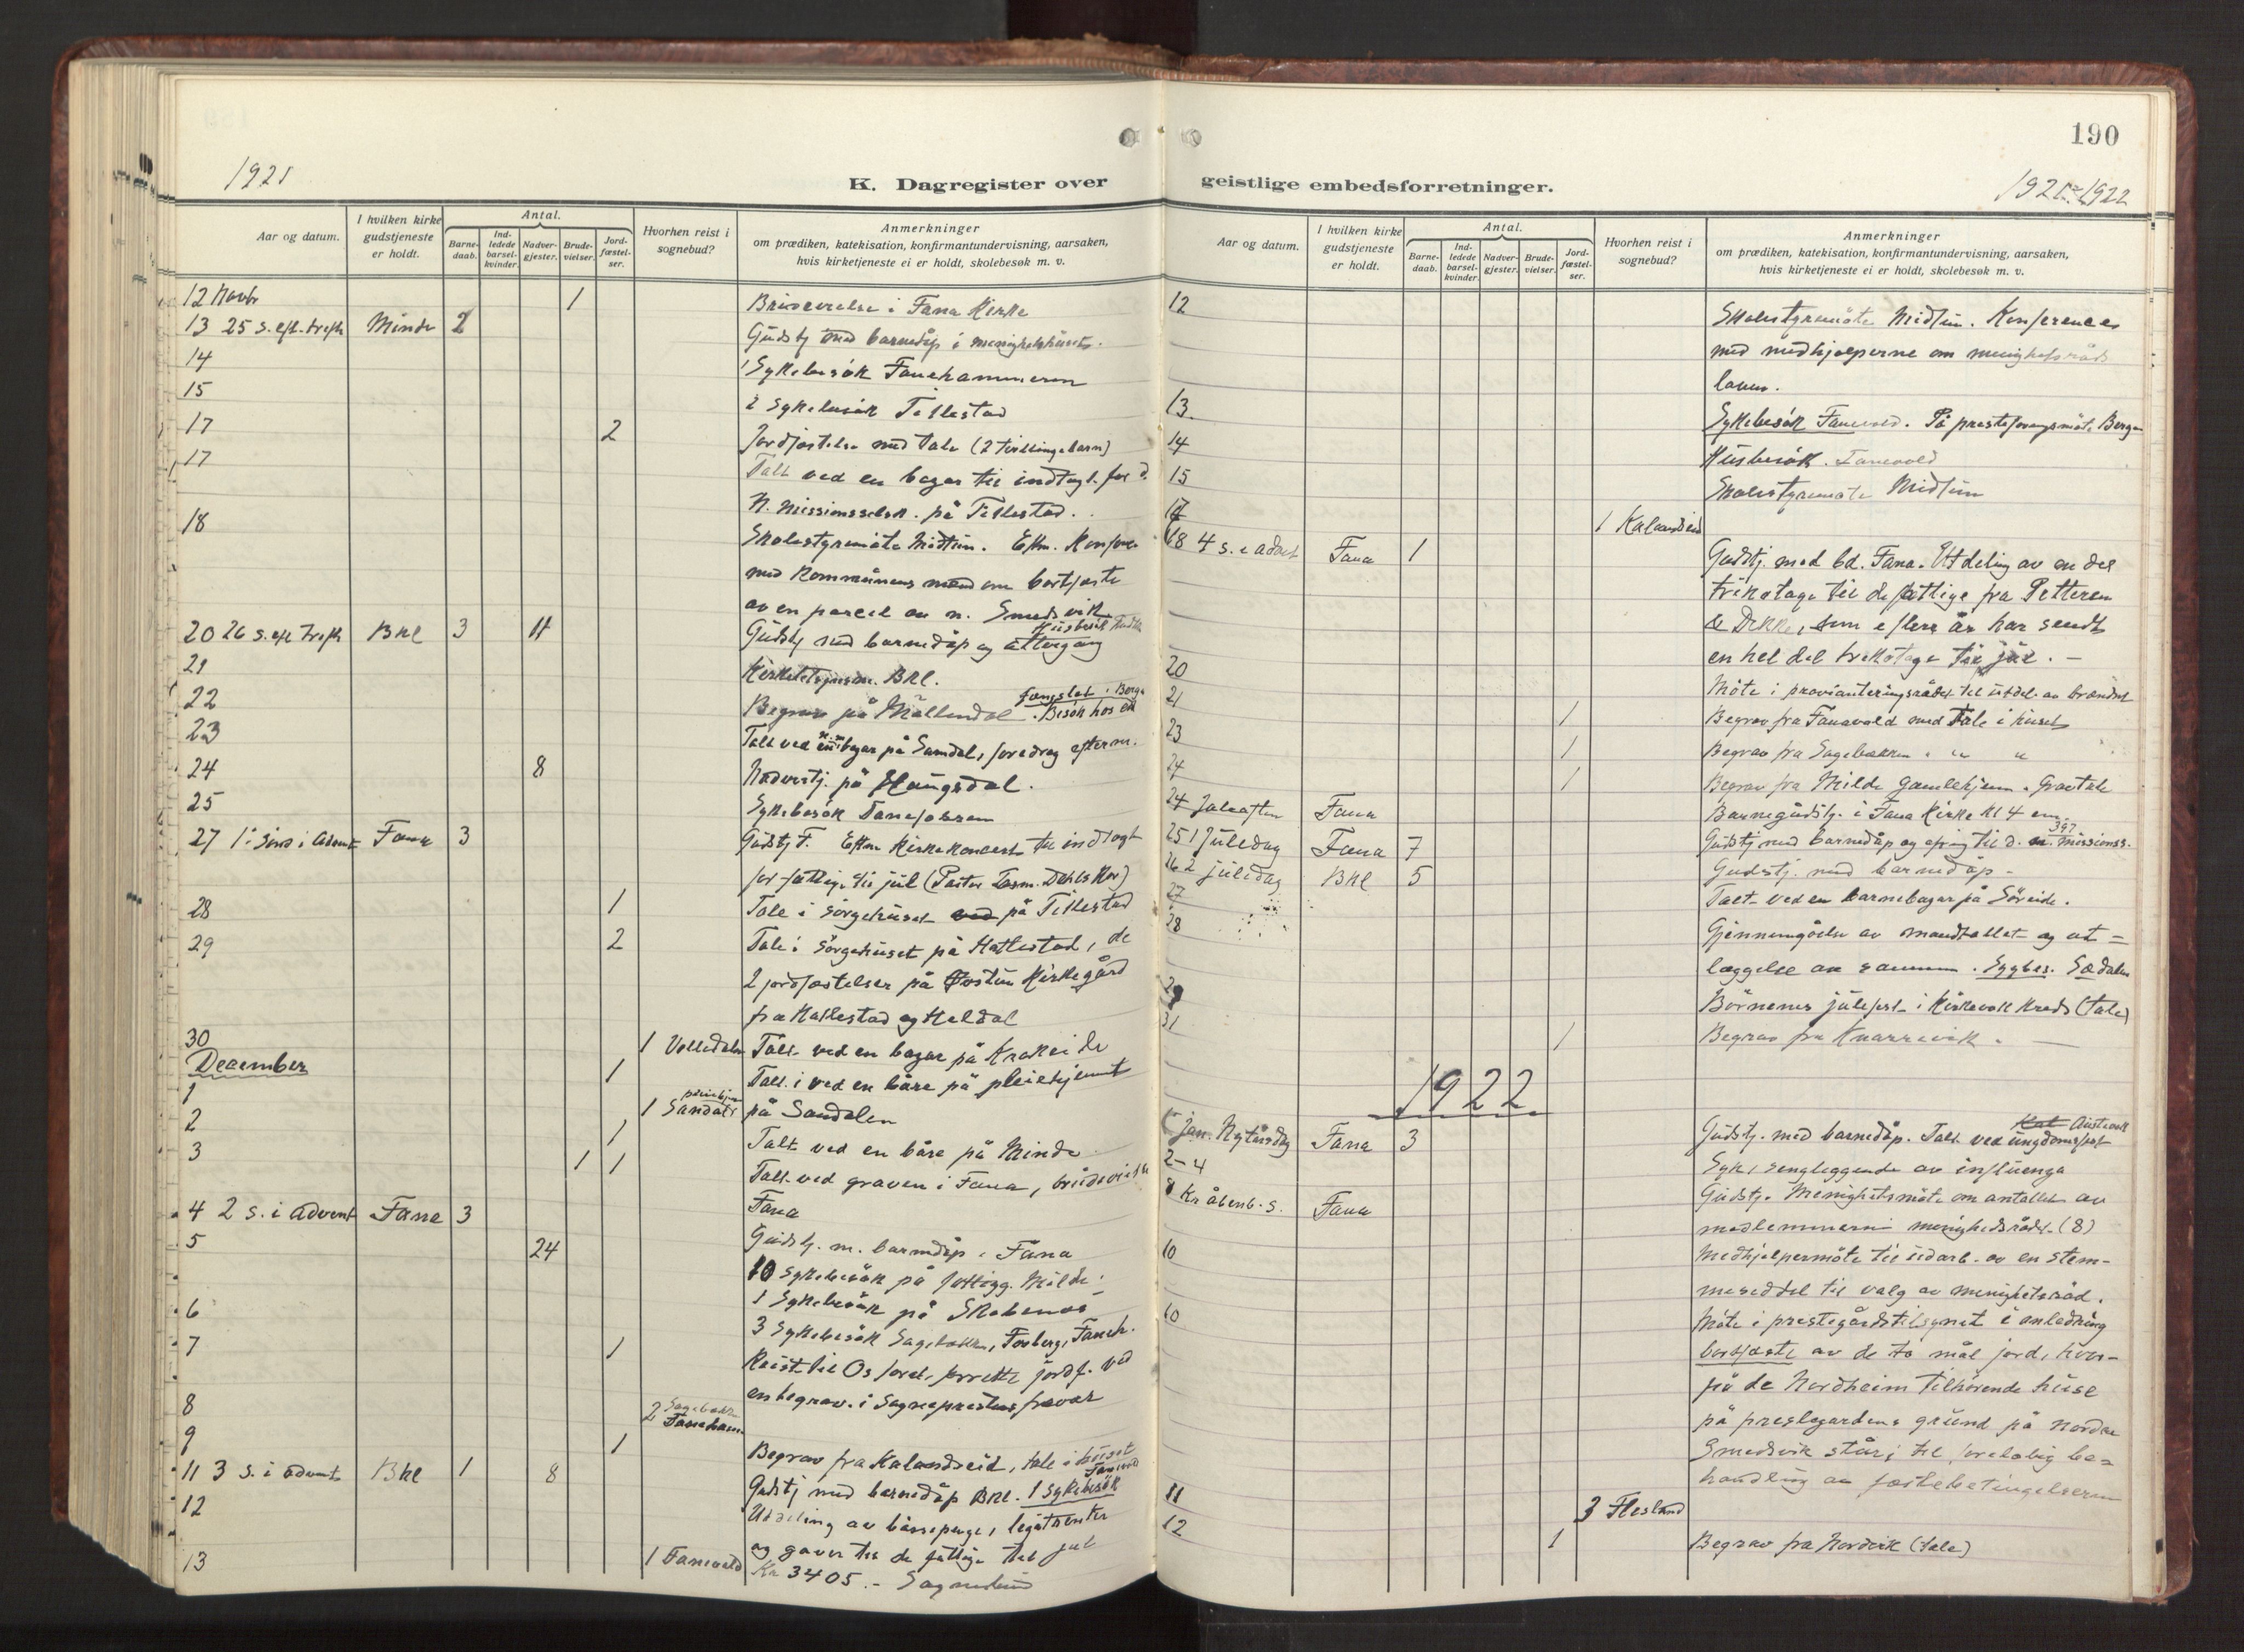 190
1921
K. Dagregister over
Aar og datum.
I hvilken kirke gudstjeneste er holdt.
Antal.
Barne-daab.
Ind-ledede barsel-kvinder.
Nadver-gjester.
Brude-vielser.
Jord-fæstel-ser.
Hvorhen reist i sognebud?
Anmerkninger
om prædiken, katekisation, konfirmantundervisning, aarsaken,
hvis kirketjeneste ei er holdt, skolebesøk m. v.
12 Novbr 1 i Fana Kirke
13 25 s. eft. trefh Minde 2 Gudstj med barnedåp i
14 1 Sykebesök Fanehammeren
15 2 Sykebesök Tillestad
17 2 Jordfæstelse med tale (2 tvillingebarn)
17 Talt ved en bazar til indtægt for d.
N. missionsselsk. på Tillestad.
18 Skolestyremöte Midtun. Eftm.
med Kommunens mænd om bortfæste
av en parcel av n. Smedsvik
20 26 s. eft Trefh BKL 3 11 Gudstj med barnedåp og altergang
21 BKL.
22 Begrav på Möllendal. Besök hos en
fængslet i Bergen
23 Talt ved en bazar på Samdal, foredrag efterm.
24 8 Nadverstj. på Haugsdal.
25 Sykebesök
27 1. Sönd i Advent Fana 3 Gudstj F. Eftm Kirkekoncert til indtægt
for fattige til jul (Pastor Dahls Kor)
28 1 Tale i sörgehuset på Tillestad
29 2 Tale i Sörgehuset på Hatlestad, de
2 jordfæstelser på Kirkegård
fra Hatlestad og Heldal
30 1 Talt ved en bazar på Krokeide
December
1 1 Talt i ved en båre på pleiehjemt
2 1 Sandaln på Sandalen
3 1 Talt ved en båre på Minde
1 1 Talt ved graven i Fana,
Fana
4 2 s. i Advent Fana 3 Gudstj. m. barnedåp i Fana
5 24 10 sykebesök på Milde.
1 Sykebesök på
6 3 Sykebesök Sagebakken, Fosberg, Faneh.
7 1 Reist til Os for at forrette jordf. ved
en begrav. i Sogneprestens fravær
8 2 Sagebakk
Faneham
9 1 Begrav fra Kalandseid, tale i huset
11 3 s. i advent BKL 1 8 Gudstj med barnedåp BKL. 1 Sykebesök
12 Utdeling av bössepenge, legatrenter
og gaver til de fattige til jul
13 1 Fanevold Kr 3405.-
1921-1922
geistlige embedsforretninger.
Aar og datum.
I hvilken kirke gudstjeneste er holdt.
Antal.
Barne-daab.
Ind-ledede barsel-kvinder.
Nadver-gjester.
Brude-vielser.
Jord-fæstel-ser.
Hvorhen reist i sognebud?
Anmerkninger
om prædiken, katekisation, konfirmantundervisning, aarsaken,
hvis kirketjeneste ei er holdt, skolebesøk m. v.
12 Skolestyremöte Midtun. Konferences
med medhjælperne om menighetsråds
loven.
13. Sykebesök Fanevold. På prestefor møte Bergen
14 Husbesök. Fanevold
15 Skolestyremöte Midtun
17 1 Kalandseid
18 4 s. i advent Fana 1 Gudstj. med bd. Fana. Utdeling av en del
trikotage til de fattige fra Petterøe
& Dekke, som i flere år har sendt
en hel del trikotage til jul. -
20 Möte i provianteringsrådet til utdel. av brændsel
21 1 Begrav fra Fanavold med tale i huset
23 1 Begrav fra Sagebakken " " "
24 1 Begrav fra Milde gamlehjem. Gravtale
24 Juleaften Fana Barnegudstj. i Fana Kirke kl 4 em.
25 1 Juledag Fana 7 Gudstj med barnedåp og ofring til d. n. missionss.
26 2 juledag BKL 5 Gudstj. med barnedåp -
27 Talt ved en barnebazar på Söreide.
28 Gjennemgåelse av mandtallet og ut =
læggelse av samme. Sygbes. Sædalen
29 Börnenes julefest i Kirkevoll Kreds (tale)
31 1 Begrav fra Knarrevik.
1922
1 jan. Nytårsdag Fana 3 Gudstj. med barnedåp. Talt ved ungdomsfest
2-4 Syk, sengeliggende av influenza
8 Kr åbenb. s. Fana Gudstj. Menighetsmöte om antallet av
medlemmer i menighedsrådet (8)
10 Medhjelpermöte til udarb. av en stem-
meseddel til valg av menighetsråd.
10 Möte i prestegårdstilsynet i anledning
bortfæste av de to mål jord, hvor-
på de Nordheim tilhörende huse
på prestegardens grund på nordre
Smedsvik står; til foreløbig be=
handling av fæstebetingelserne
11 3 Flesland
12 1 Begrav fra Nordvik (tale)